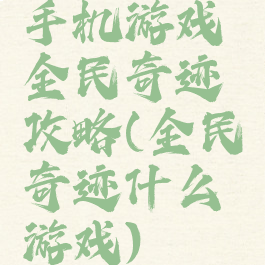 手机游戏
全民奇迹
攻略(全民
奇迹什么
游戏)